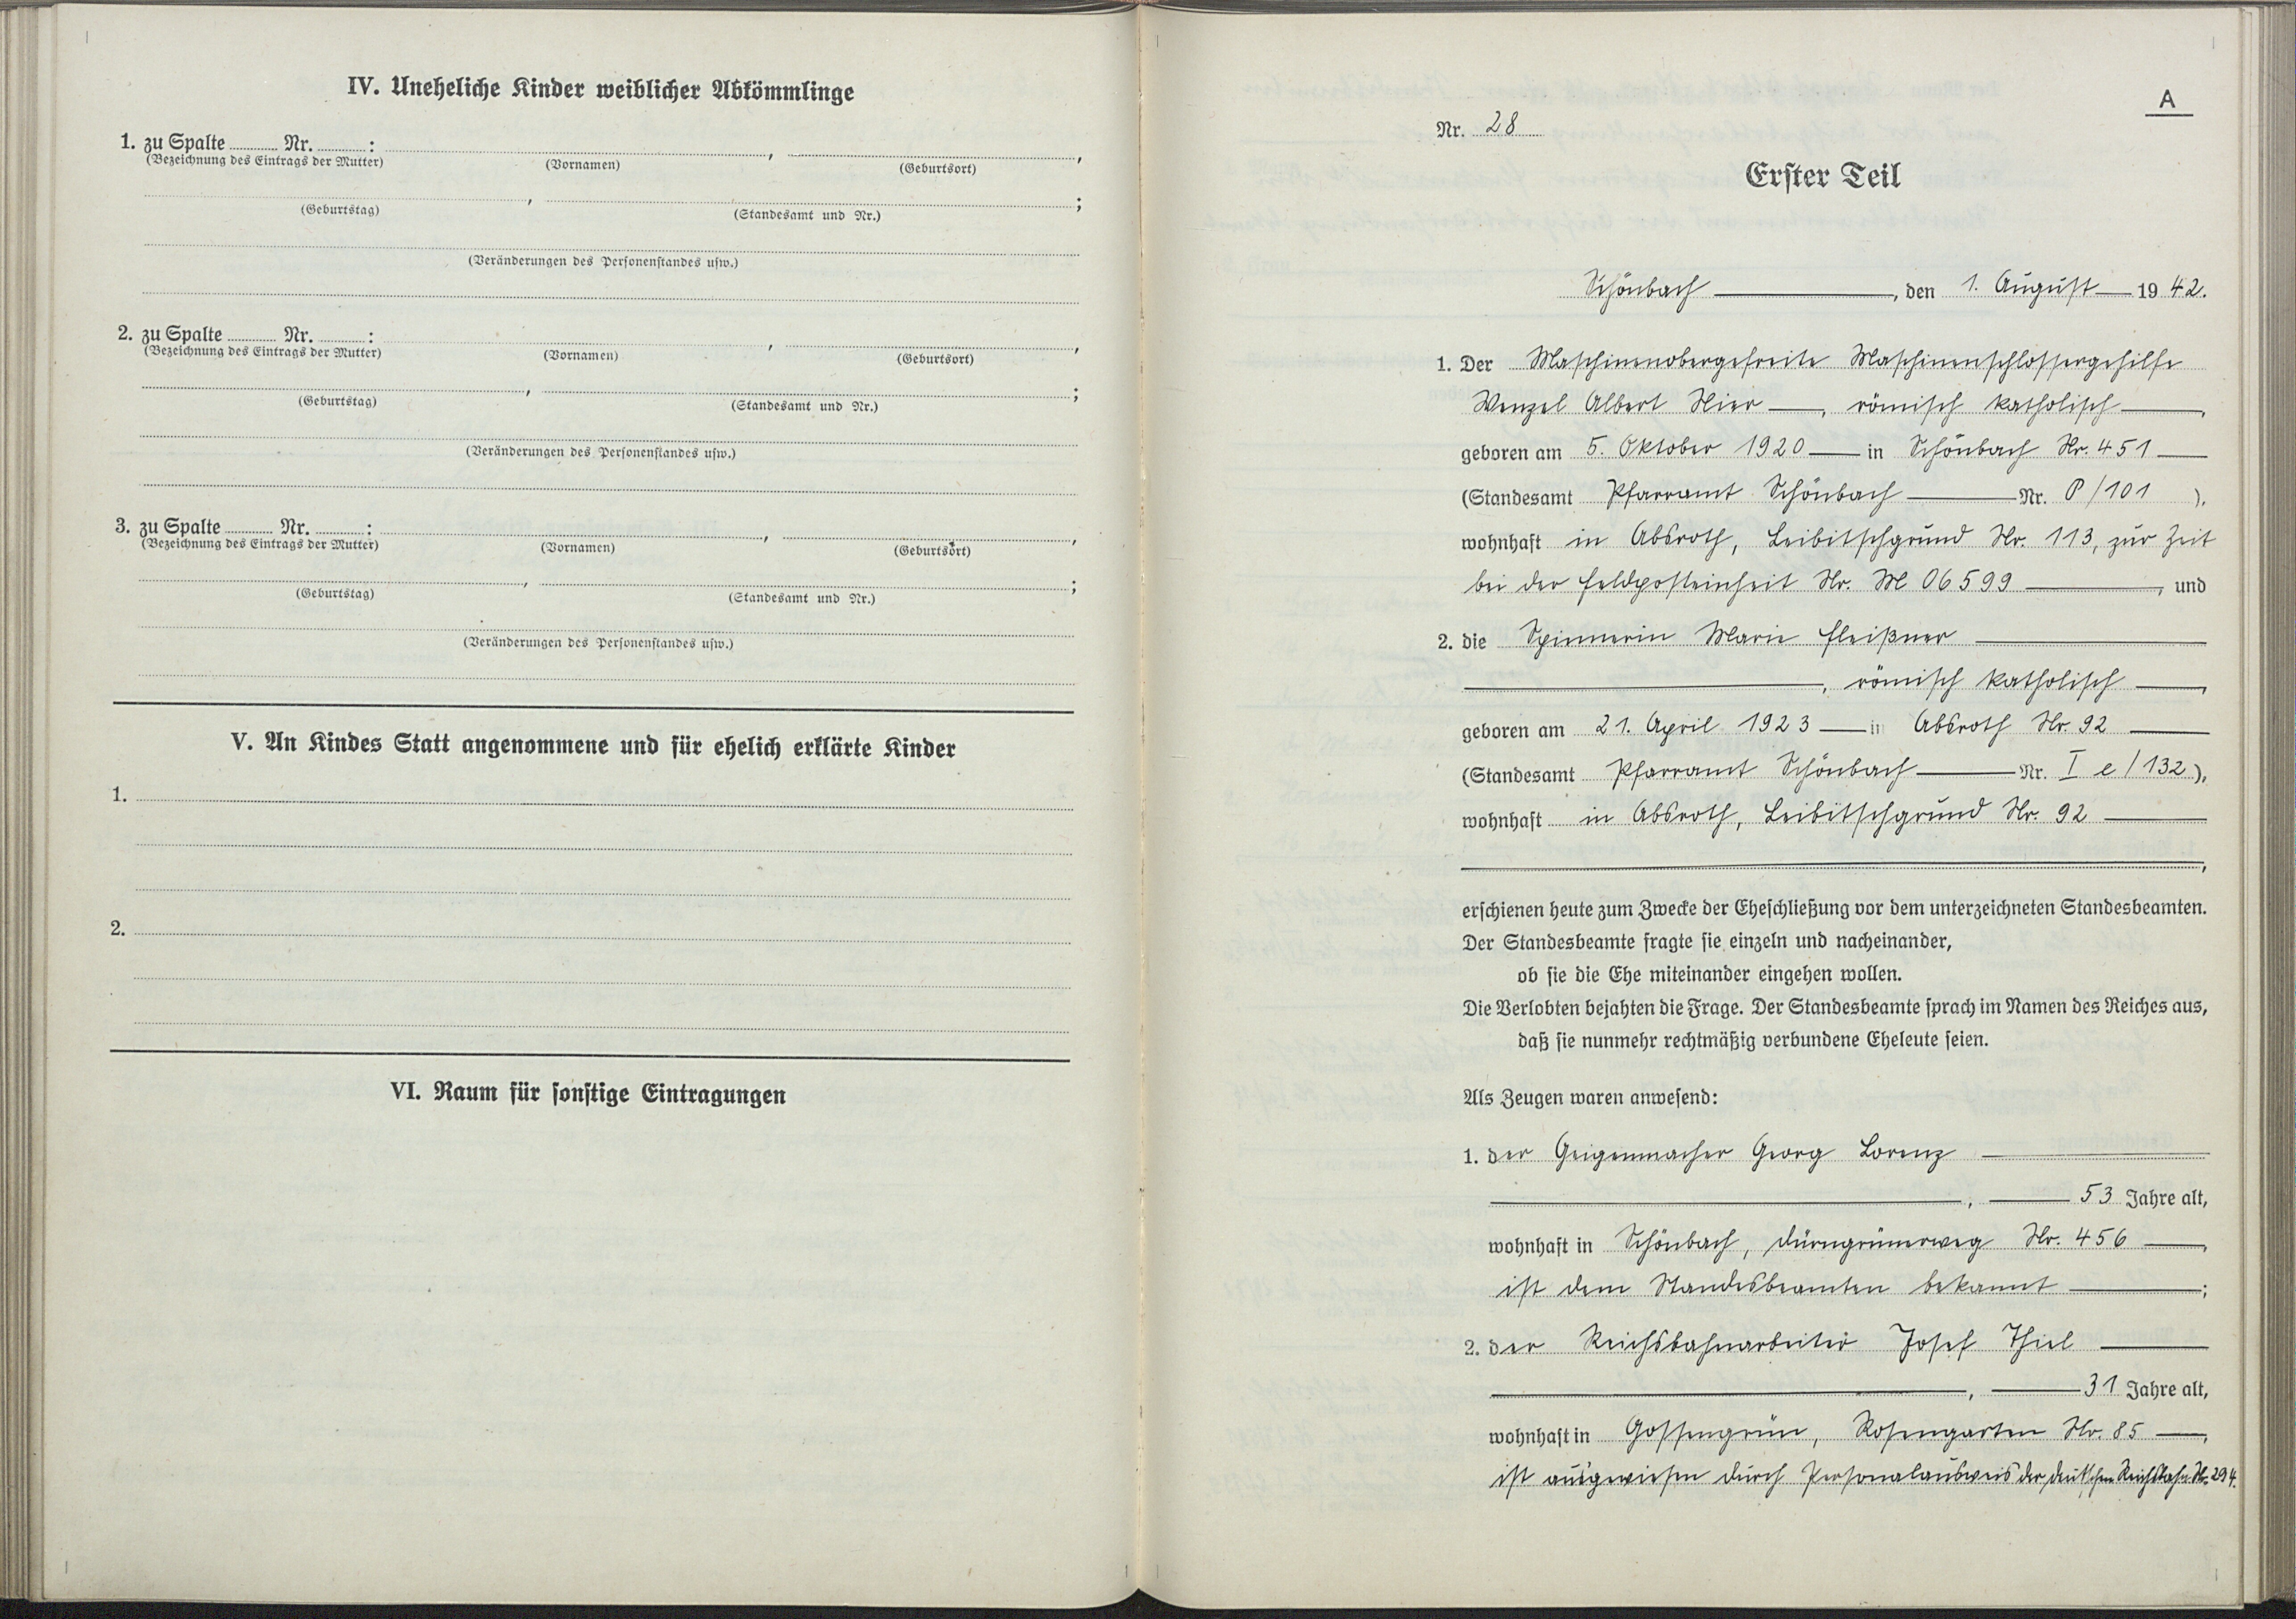 IV. Uneheliche Kinder weiblicher Abkömmlinge
1. zu Spalte ........ Nr. ........ :
(Bezeichnung des Eintrags der Mutter) (Vornamen) (Geburtsort)
(Geburtstag) (Standesamt und Nr.)
(Veränderungen des Personenstandes usw.)
2. zu Spalte ........ Nr. ........ :
(Bezeichnung des Eintrags der Mutter) (Vornamen) (Geburtsort)
(Geburtstag) (Standesamt und Nr.)
(Veränderungen des Personenstandes usw.)
3. zu Spalte ........ Nr. ........ :
(Bezeichnung des Eintrags der Mutter) (Vornamen) (Geburtsort)
(Geburtstag) (Standesamt und Nr.)
(Veränderungen des Personenstandes usw.)
V. An Kindes Statt angenommene und für ehelich erklärte Kinder
1.
2.
VI. Raum für sonstige Eintragungen
A
Nr. 28
Erster Teil
Schönbach, den 1. August 1942.
1. Der Maschinenobergefreite Maschinenschlossergehilfe
Wenzel Albert Hier, römisch katholisch,
geboren am 5. Oktober 1920 in Schönbach Nr. 451
(Standesamt Pfarramt Schönbach Nr. P/101),
wohnhaft in Absroth, Leibitschgrund Nr. 113, zur Zeit
bei der Feldposteinheit Nr. M 06599, und
2. die Spinnerin Marie Fleißner
, römisch katholisch,
geboren am 21. April 1923 in Absroth Nr. 92
(Standesamt Pfarramt Schönbach Nr. I e/132),
wohnhaft in Absroth, Leibitschgrund Nr. 92
,
erschienen heute zum Zwecke der Eheschließung vor dem unterzeichneten Standesbeamten.
Der Standesbeamte fragte sie einzeln und nacheinander,
ob sie die Ehe miteinander eingehen wollen.
Die Verlobten bejahten die Frage. Der Standesbeamte sprach im Namen des Reiches aus,
daß sie nunmehr rechtmäßig verbundene Eheleute seien.
Als Zeugen waren anwesend:
1. der Geigenmacher Georg Lorenz
, 53 Jahre alt,
wohnhaft in Schönbach, Dürngrünerweg Nr. 456,
ist dem Standesbeamten bekannt;
2. der Reichsbahnarbeiter Josef Thiel
, 31 Jahre alt,
wohnhaft in Gossengrün, Rosengarten Nr. 85,
ist ausgewiesen durch Personalausweis der Deutschen Reichsbahn Nr. 294.